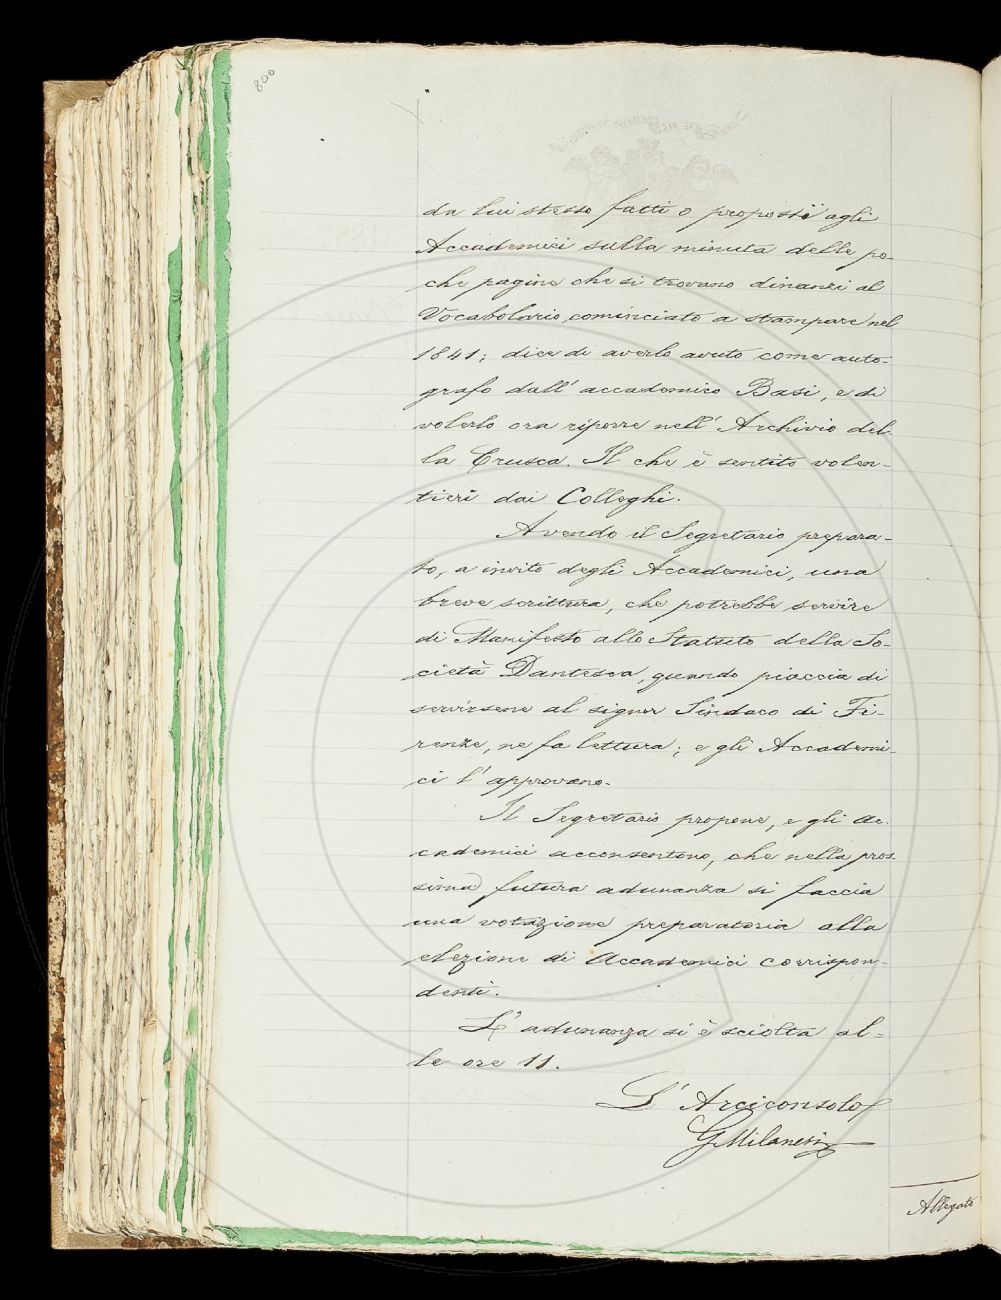 800
da lui stesso fatti o proposti agli
Accademici sulla minuta delle po-
che pagine che si trovano dinanzi al
Vocabolario, cominciato a stampare nel
1841; dice di averlo avuto come auto-
grafo dall' accademico Basi, e di
volerlo ora riporre nell' Archivio del-
la Crusca. Il che è sentito volen-
tieri dai Colleghi.
Avendo il Segretario prepara-
to, a invito degli Accademici, una
breve scrittura, che potrebbe servire
di Manifesto allo Statuto della So-
cietà Dantesca, quando piaccia di
servirsene al signor Sindaco di Fi-
renze, ne fa lettura; e gli Accademi-
ci l' approvano.
Il Segretario propone, e gli Ac-
cademici acconsentono, che nella pros-
sima futura adunanza si faccia
una votazione preparatoria alla
elezione di Accademici corrispon-
denti.
L' adunanza si è sciolta al-
le ore 11.
L' Arciconsolo
G Milanesi
Allegato